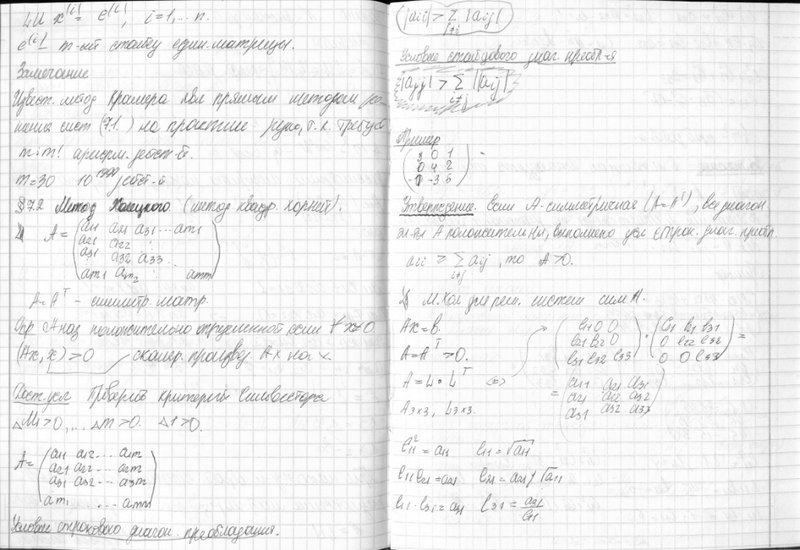 x^{(i)} = e^{(i)}, i=1,...n.
e^{(i)} - m-ый столбец един. матрицы.
Замечание
Извест. метод Крамера явл прямым методом ре-
шения сист (7.1.) на практике редко, т.к. требует
m·m! арифм. действ-й.
m=30 действ-й
§ 7.2 Метод Холецкого (метод квадр. корней).
A = (a11 a21 a31 ... am1
a21 a22
a31 a32 a33 ...
am1 am2 amm)
A=A^T - симметр. матр.
Опр. A наз положительно определенной если ∀ x≠0
(Ax, x) > 0 скаляр. произвед Ax на x.
Дост. усл Проверить критерий Сильвестра
ΔM1>0, ... Δm>0. Δ1>0.
A = (a11 a12 ... a1m
a21 a22 ... a2m
a31 a32 ... a3m
am1 ... amm)
Условие строкового диагон. преобладания.
|aii| > Σ |aij|
Условие столбцового диаг. преобл-я
|ajj| > Σ |aij|
i≠j
Пример
(3 0 1
0 4 2
-1 -3 5)
Утверждение. Если A-симметричная (A=A^T), все диагон
эл-ты A положительны, выполнено усл строк. диаг. преобл.
aii ≥ Σ aij, то A>0.
i≠j
М. Хол для реш. систем
Ax=b.
A=A^T >0.
A = L · L^T <=>
A3×3, L3×3.
(l11 0 0
l21 l22 0
l31 l32 l33) · (l11 l21 l31
0 l22 l32
0 0 l33) =
= (a11 a21 a31
a21 a22 a32
a31 a32 a33)
l11^2 = a11 l11 = √a11
l11 l21 = a21 l21 = a21/√a11
l11 · l31 = a31 l31 = a31/l11